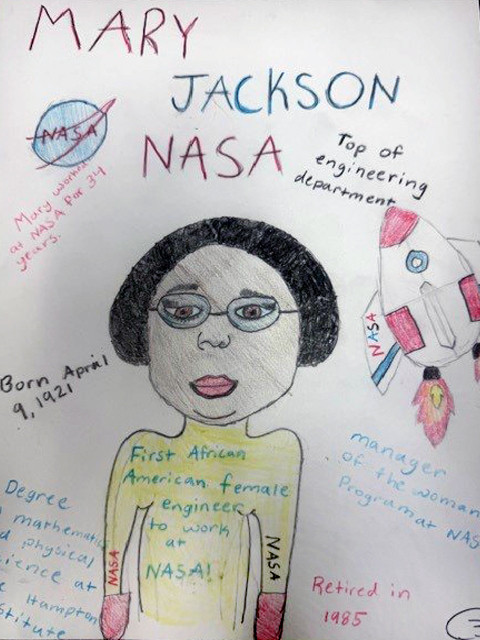 MARY
JACKSON
NASA
NASA
Mary worked
at NASA for 34
years.
Top of
engineering
department
NASA
Born April
9, 1921
First African
American female
engineer
to work
at
NASA!
NASA
NASA
manager
of the woman
Program at NAS
Degree
mathematics
d physical
ience at
e Hampton
stitute
Retired in
1985